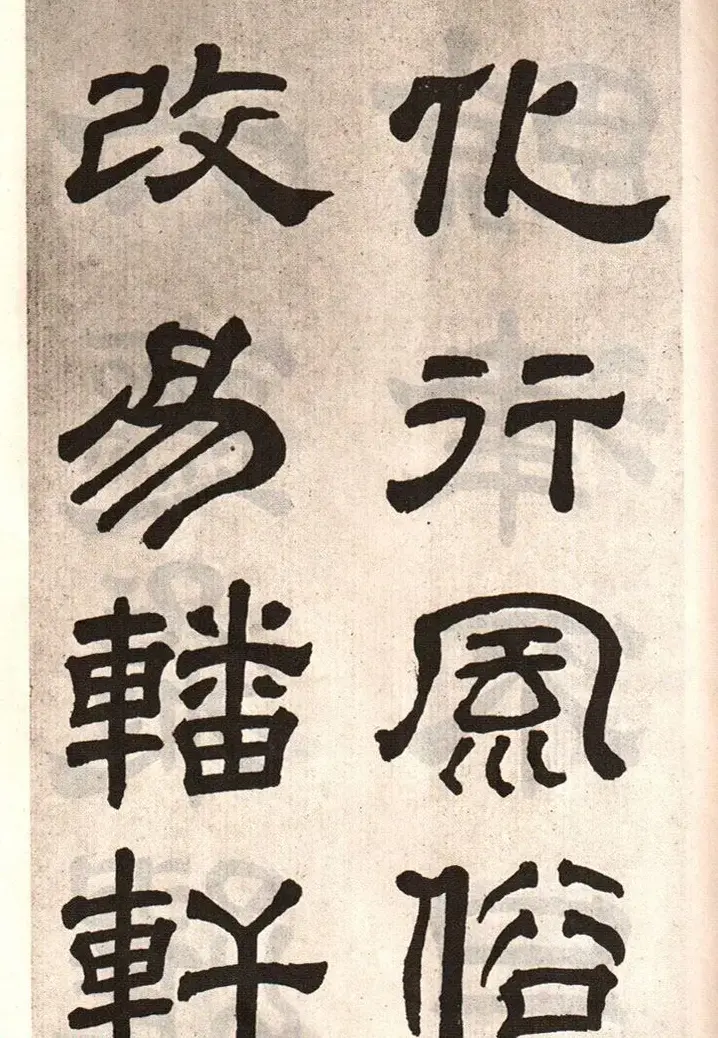 化行風俗
改易轓軒